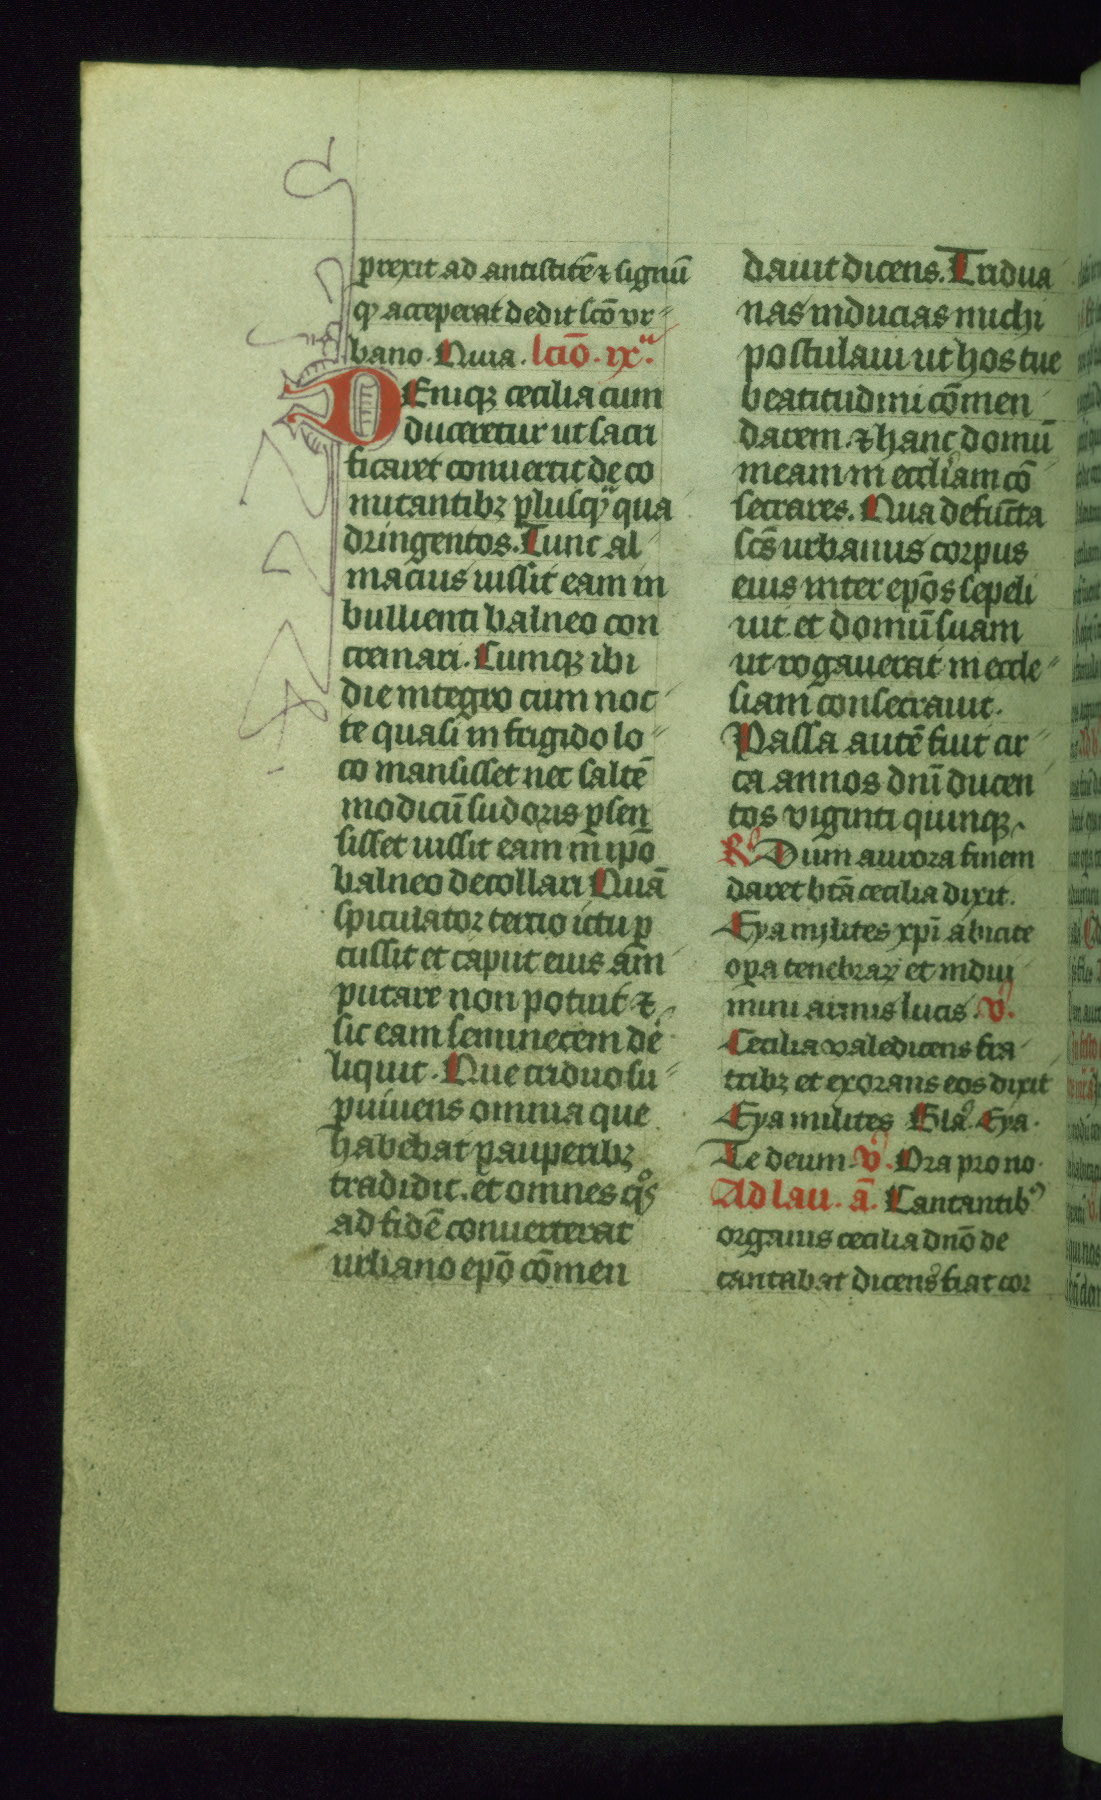 prexit ad antistitē ⁊ signū
qͥ acceperat dedit scō vr
bano. Quia. lcio. ix.ᵃ
DEniqꝫ cecilia cum
duceretur ut sacri
ficaret convertit de co
mitantibꝫ plusqᵃ qua
dringentos. Tunc al
macius iussit eam in
bullienti balneo con
cremari. Cumqꝫ ibi
die integro cum noc
te quasi in frigido lo
co mansisset nec saltē
modicū sudoris ꝑsen
sisset iussit eam in ip̄o
balneo decollari Quā
spiculator tercio ictu ꝑ
cussit et caput eius am̄
putare non potuit ⁊
sic eam seminecem de
liquit. Que triduo su
ꝑuivens omnia que
habebat pauperibꝫ
tradidit. et omnes qͦs
ad fidē converterat
urbano epō cōmen
davit dicens. Tridua
nas inducias michi
postulavi ut hos tue
beatitudini cōmen
darem. ⁊ hanc domū
meam in eccliam cō
secrares. Qua defūcta
scs̄ urbanus corpus
eius inter epōs sepeli
vit et domū suam
ut rogaverat in eccle
siam consecravit.
Passa autē fuit cir
ca annos dn̄i ducen
tos viginti quinqꝫ
R Dum aurora finem
daret btā cecilia dixit.
Eya milites xp̄i abicite
oꝑa tenebraꝝ et indui
mini armis lucis. v.
Cecilia valedicens fra
tribꝫ et exorans eos dixit
Eya milites Gla. Eya.
Te deum. v. Ora pro no.
Ad lau. ā. Cantantibꝰ
organis cecilia dnō de
cantabat dicens fiat cor